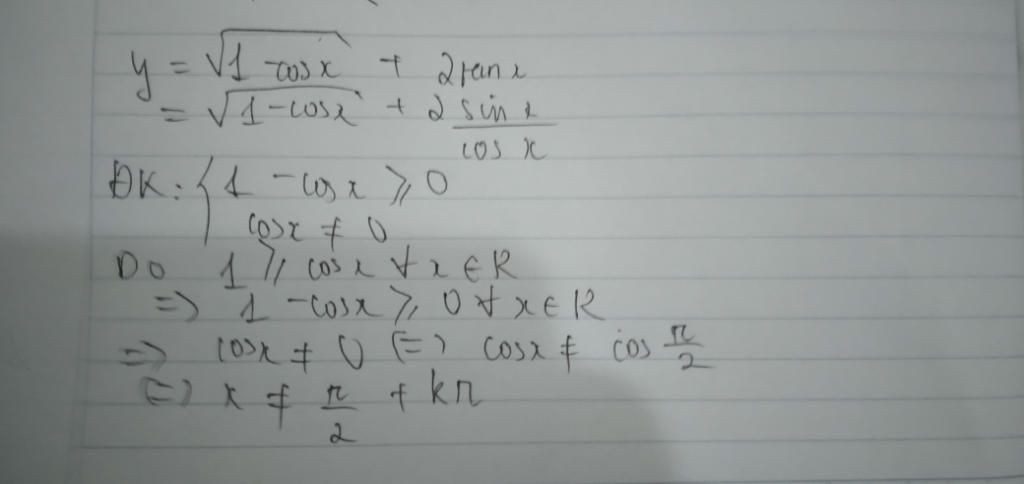 y = √(1 - cosx) + 2tan x
= √(1 - cosx) + 2 sin x / cos x
ĐK: { 1 - cos x ⩾ 0
cosx ≠ 0
Do 1 ⩾ cos x ∀ x ∈ R
=> 1 - cosx ⩾ 0 ∀ x ∈ R
=> cosx ≠ 0 (=) cosx ≠ cos π/2
(=) x ≠ π/2 + kπ